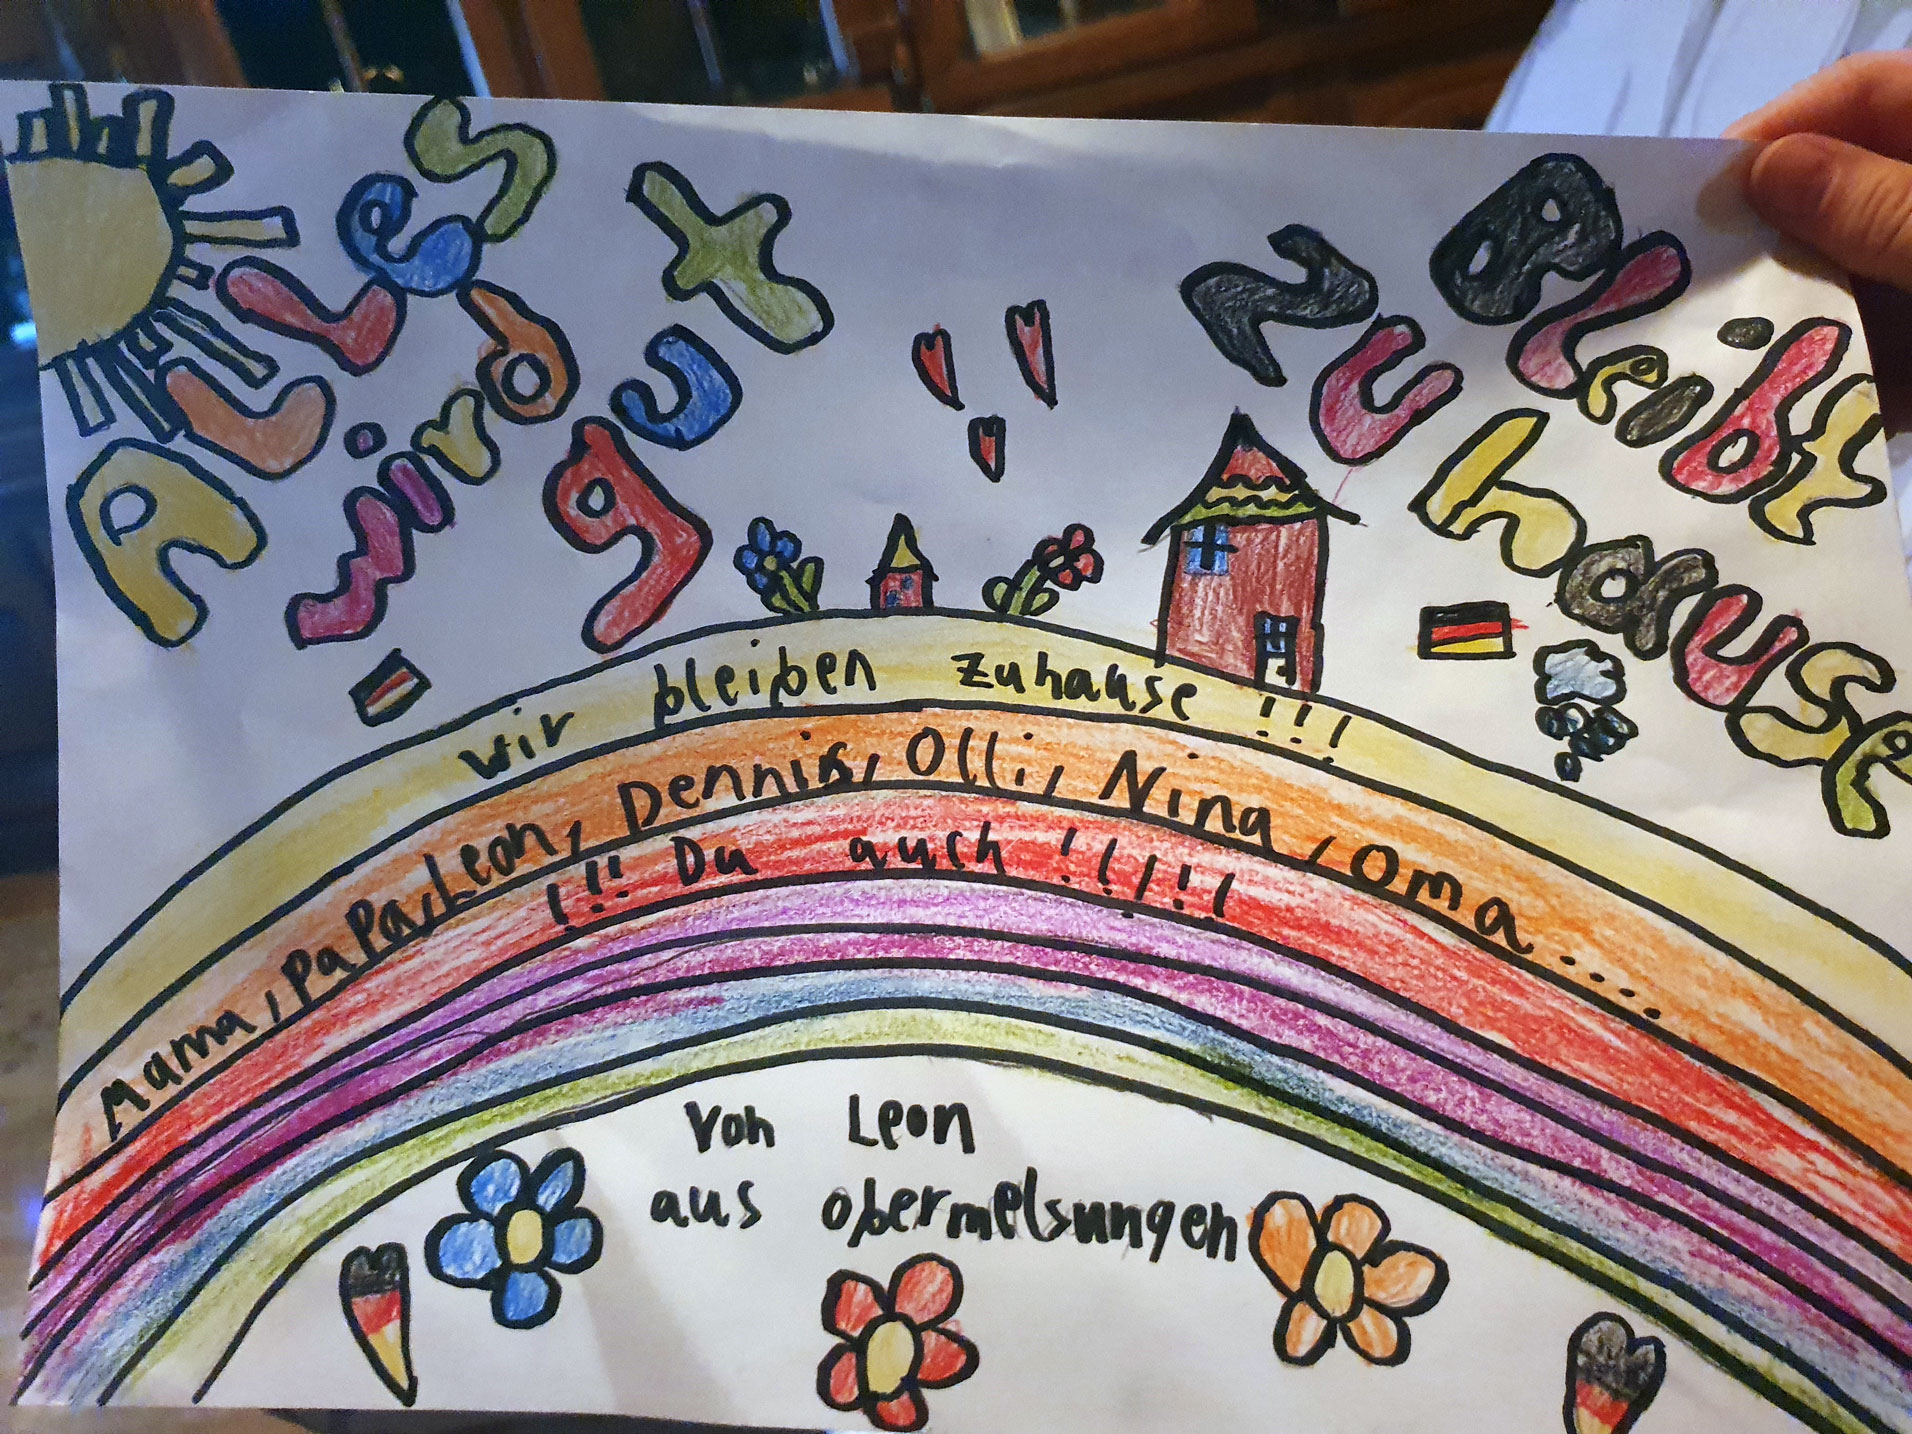 ALLes
wird
gut
Bleibt
zu hause
wir bleiben zuhause!!!
Mama, PaPa, Leon, Dennis, Olli, Nina, Oma.....
!!! Du auch !!!!!
von Leon
aus obermelsungen